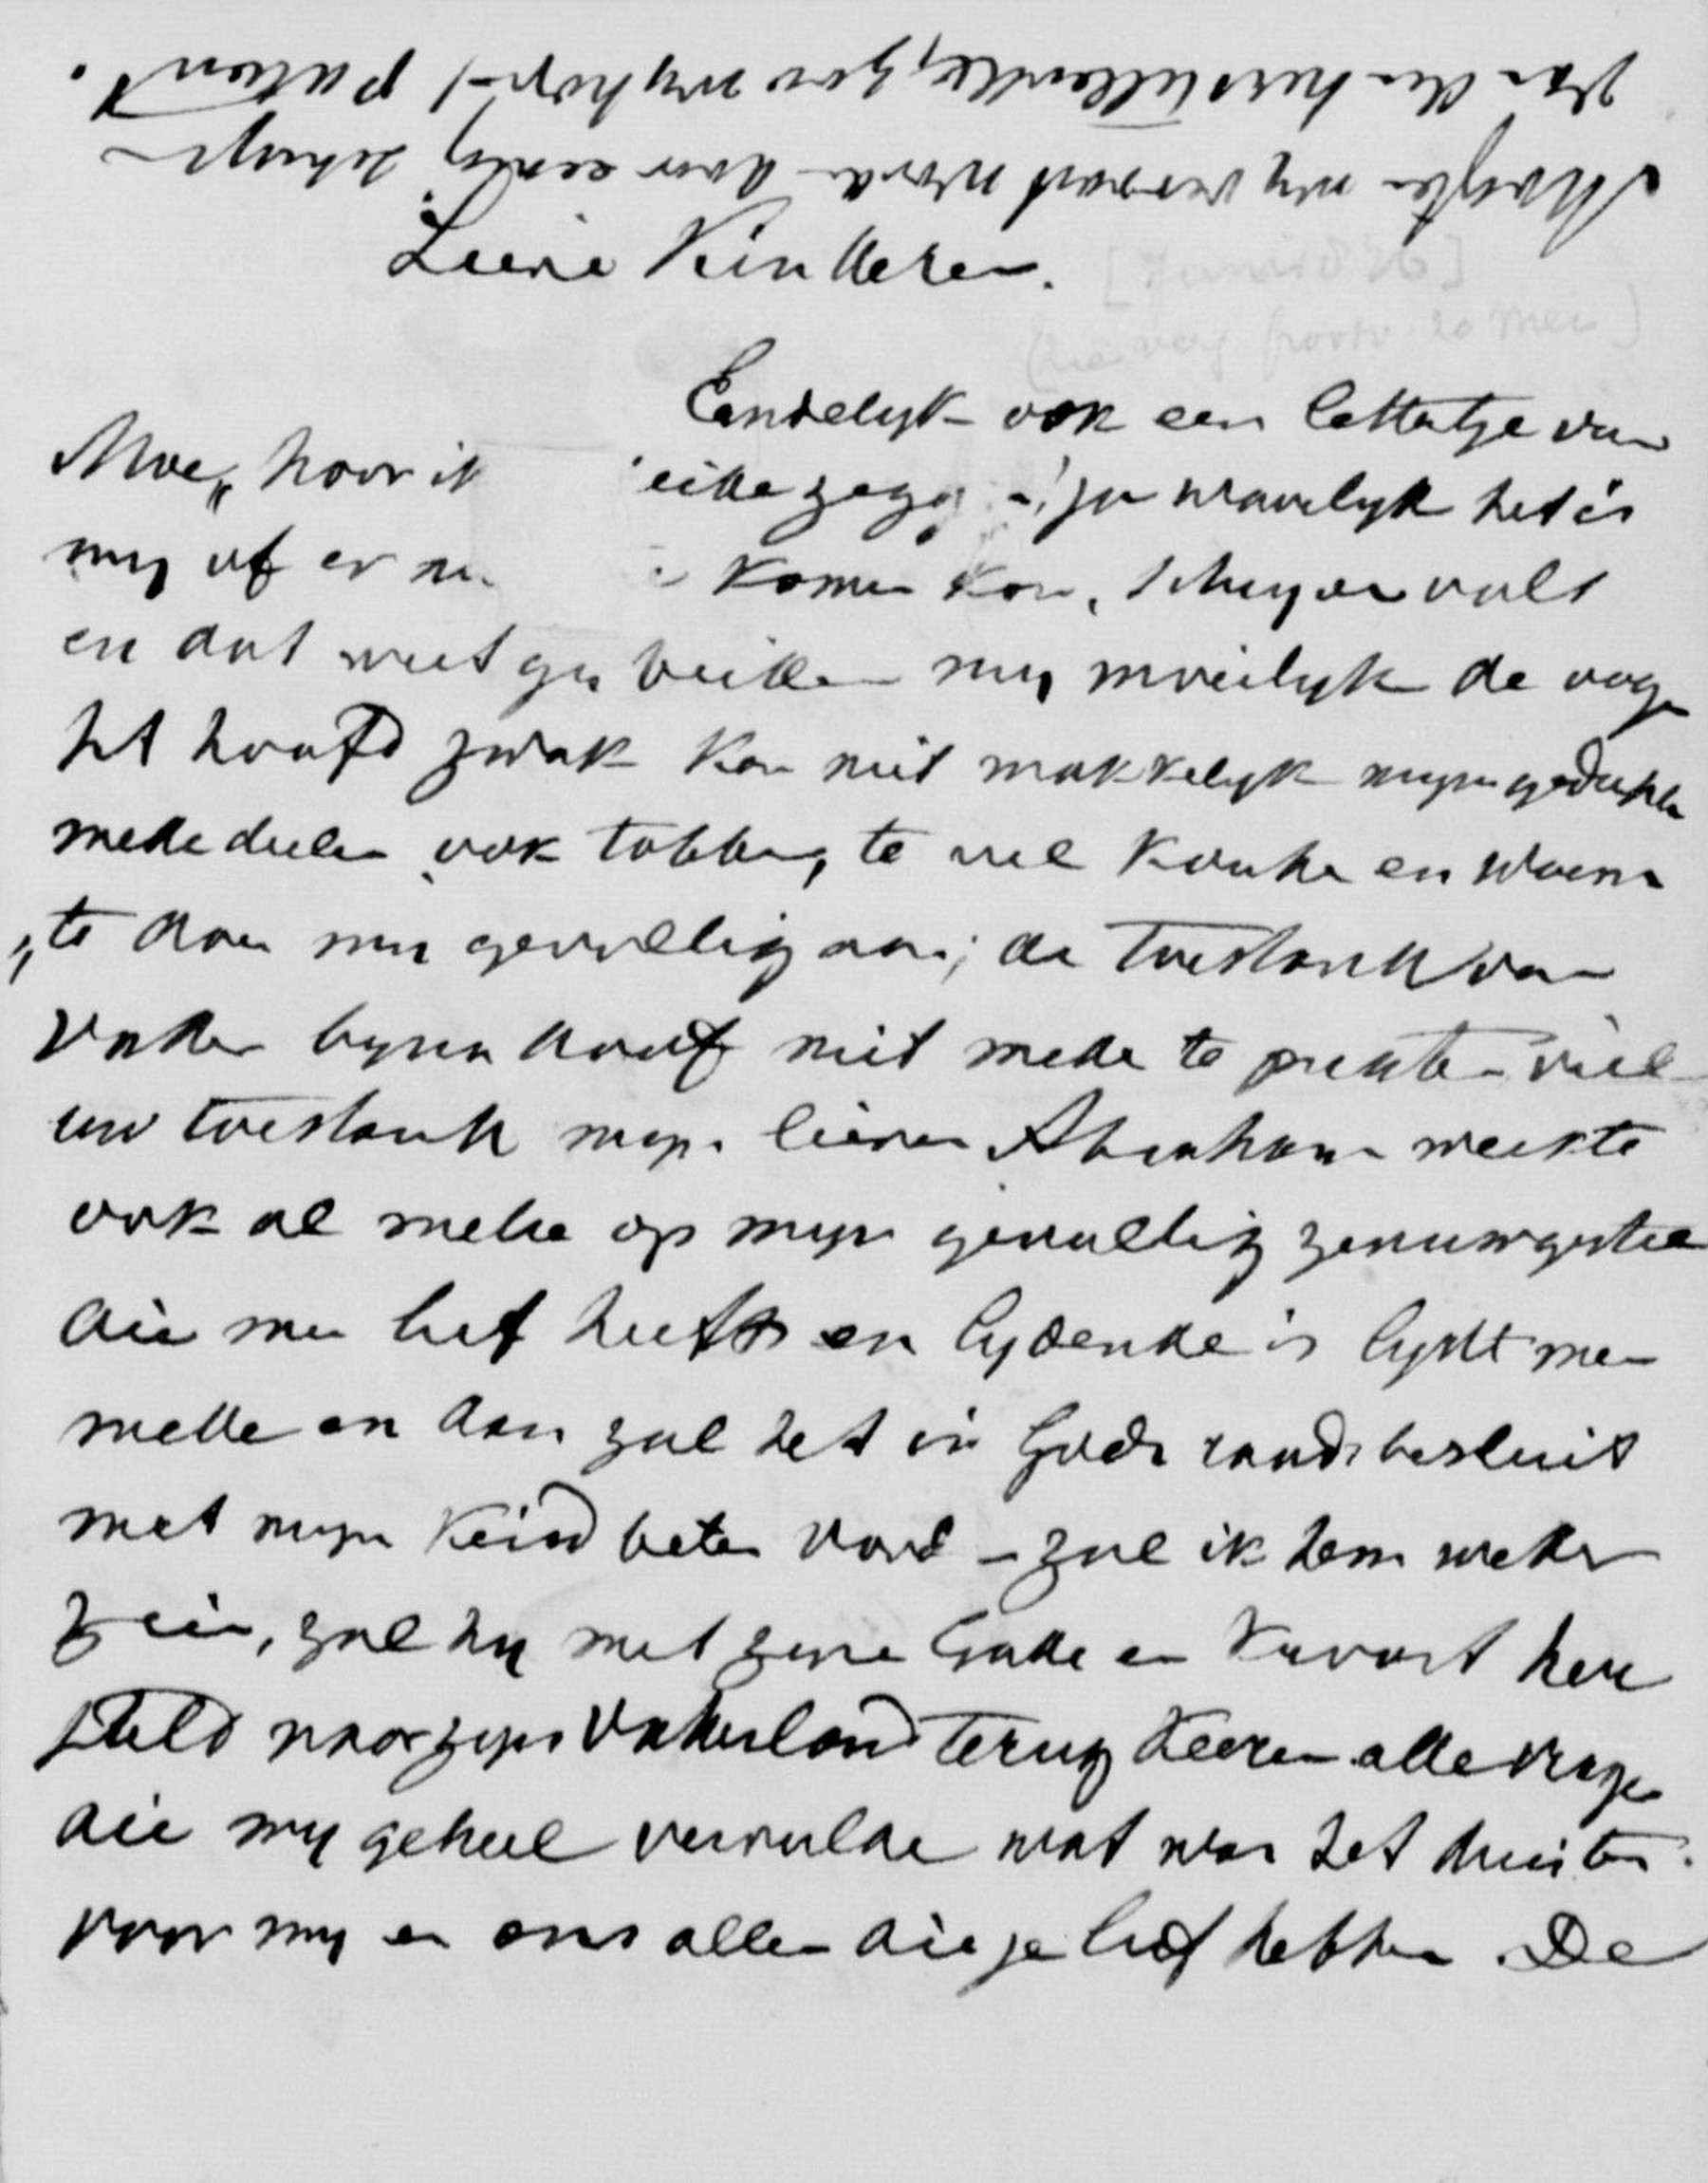 Mogten wy verrast worden door eenig schryven
van den herstellende, zoo wy hopen, patient.
Lieve Kinderen.
Eindelyk ook een lettertje van
Moe, hoor ik beide zegg - ja waarlyk het is
my of er komen kon, schryven valt
en dat weet gy beiden my moeielyk de ooge
ht hoofd zwak kan niet makkelyk myn gedachte
mededeelen ook tobbery te veel koude en warm
te doen my geweldig aan; de toestand van
Vader byna doof niet mede te praten viel
uw toestand myn lieve Abraham werkte
ook al mede op myn gevoellig zenuwgestel
die men lief heeft en lydende is lydt men
mede en dan zal het in Gods raadsbesluit
met myn kind beter word - zal ik hem weder
zien, zal hy met zyne Gade en Kroost her
steld naar zyn Vaderland terug keeren alle vragen
die my geheel vervulde wat was het duister
voor my en ons allen die je lief hebben. De